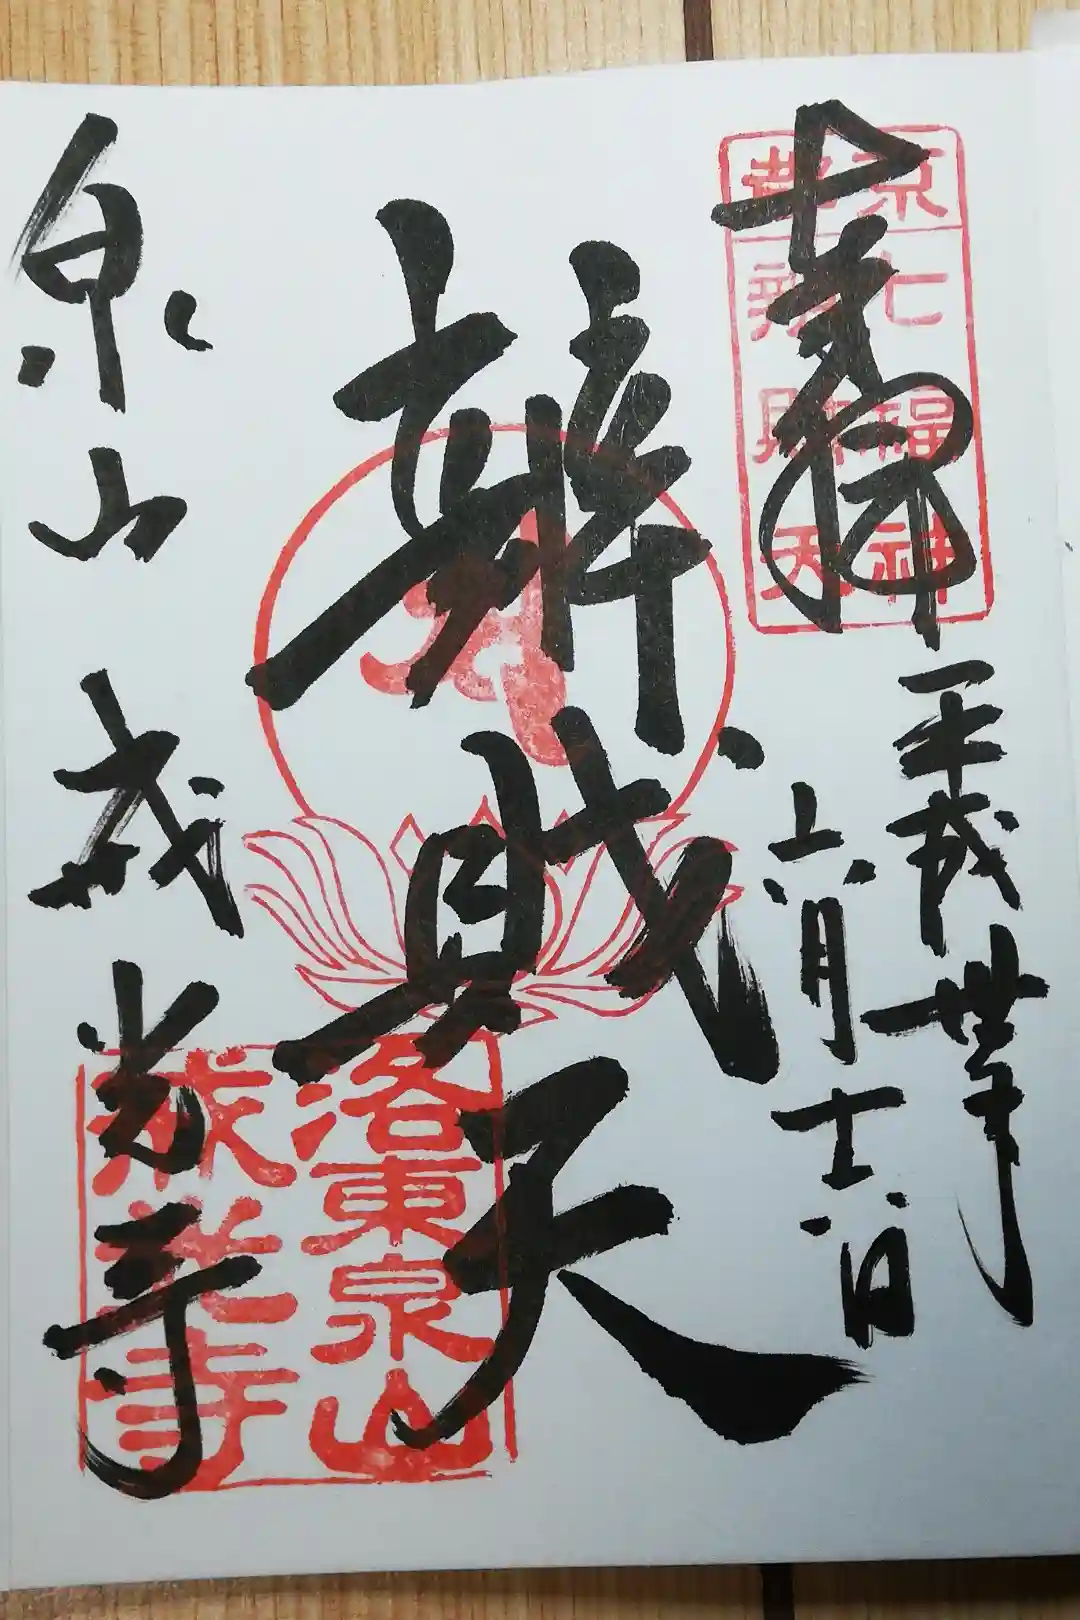 奉拝
京都
七福神
辨財天
平成丗年
六月十一日
辨財天
洛東泉山
戒光寺
泉山 戒光寺